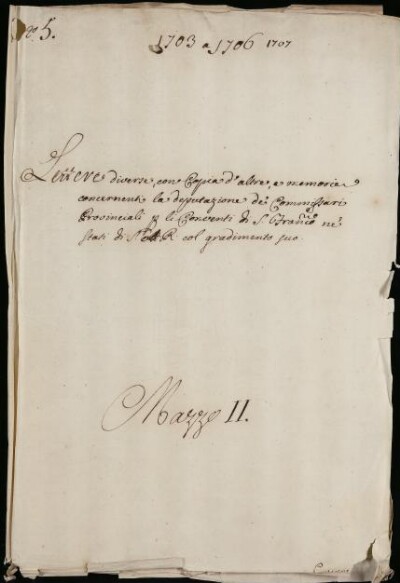 N° 5.
1703 a 1706 1707
Lettere diverse, con Copia d'altre, e memorie
concernenti la deputazione de' Commissari
Provinciali p li Conventi di S. Franco ne'
stati di S. A. R. col gradimento suo.
Mazzo II.